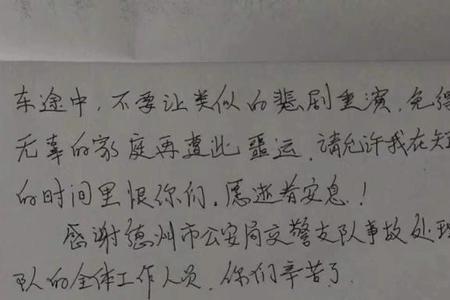 车途中，不要让类似的悲剧重演，免得
无辜的家庭再遭此噩运，请允许我在短
的时间里恨你们，愿逝者安息！
感谢德州市公安局交警支队事故处理
队的全体工作人员，你们辛苦了